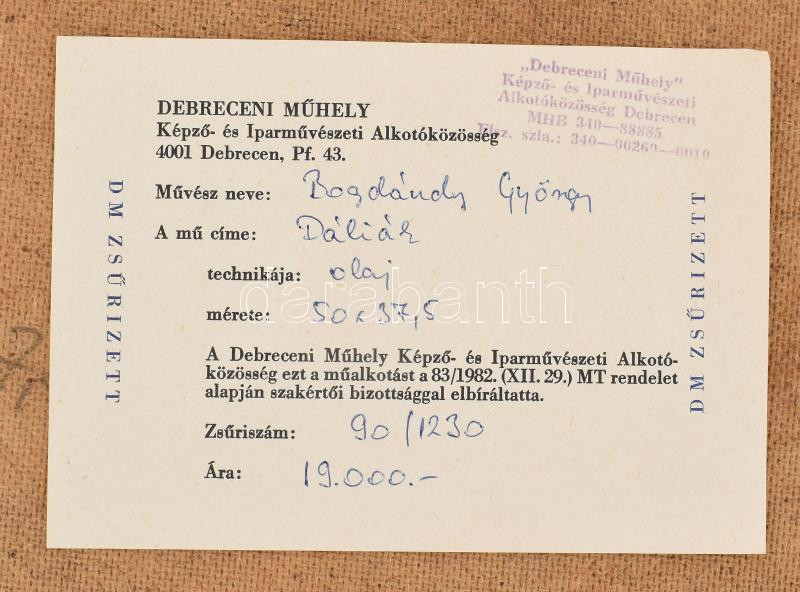 „Debreceni Műhely"
Képző- és Iparművészeti
Alkotóközösség Debrecen
MHB 340—38885
Elsz. szla.: 340—00269—0010
DEBRECENI MŰHELY
Képző- és Iparművészeti Alkotóközösség
4001 Debrecen, Pf. 43.
Művész neve: Bogdándy György
A mű címe: Dáliák
technikája: olaj
mérete: 50 x 37,5
A Debreceni Műhely Képző- és Iparművészeti Alkotó-
közösség ezt a műalkotást a 83/1982. (XII. 29.) MT rendelet
alapján szakértői bizottsággal elbíráltatta.
Zsűriszám: 90/1230
Ára: 19.000.-
DM ZSŰRIZETT
DM ZSŰRIZETT
darabanth